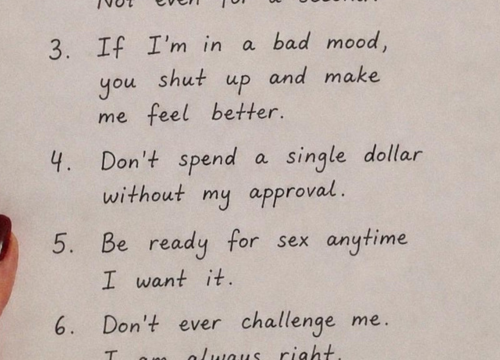 Not even for a second.
3. If I'm in a bad mood,
you shut up and make
me feel better.
4. Don't spend a single dollar
without my approval.
5. Be ready for sex anytime
I want it.
6. Don't ever challenge me.
I am always right.